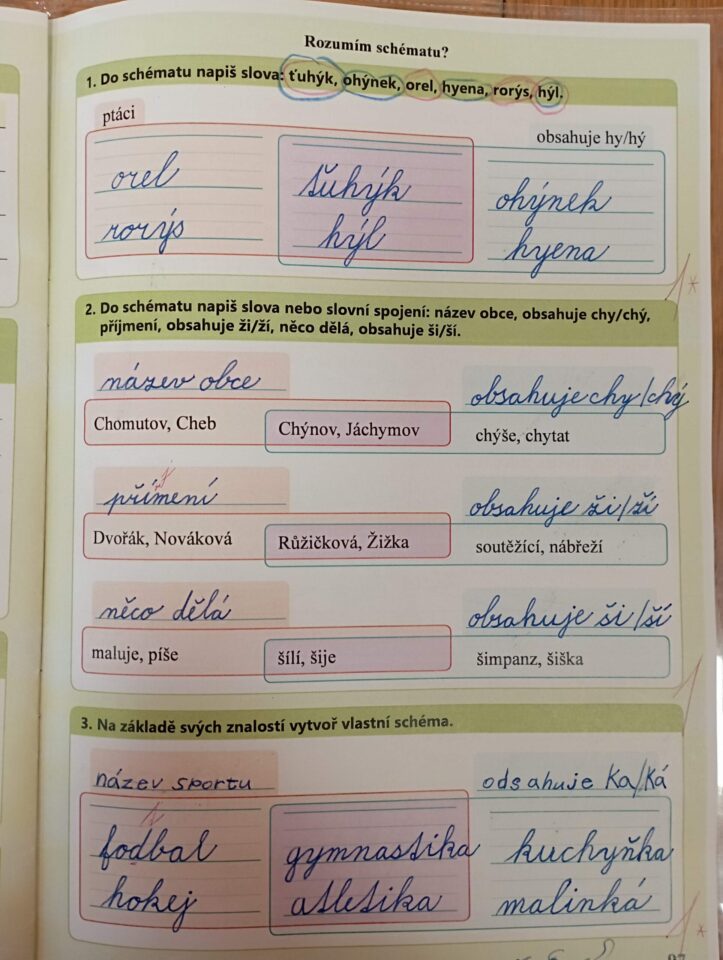 Rozumím schématu?
1. Do schématu napiš slova: ťuhýk, ohýnek, orel, hyena, rorýs, hýl.
ptáci
obsahuje hy/hý
orel
ťuhýk
ohýnek
rorýs
hýl
hyena
1*
2. Do schématu napiš slova nebo slovní spojení: název obce, obsahuje chy/chý,
příjmení, obsahuje ži/ží, něco dělá, obsahuje ši/ší.
název obce
obsahuje chy/chý
Chomutov, Cheb
Chýnov, Jáchymov
chýše, chytat
přímení
obsahuje ži/ží
Dvořák, Nováková
Růžičková, Žižka
soutěžící, nábřeží
něco dělá
obsahuje ši/ší
maluje, píše
šílí, šije
šimpanz, šiška
1
3. Na základě svých znalostí vytvoř vlastní schéma.
název sportu
odsahuje Ka/Ká
fodbal
gymnastika
kuchyňka
hokej
atletika
malinká
1*